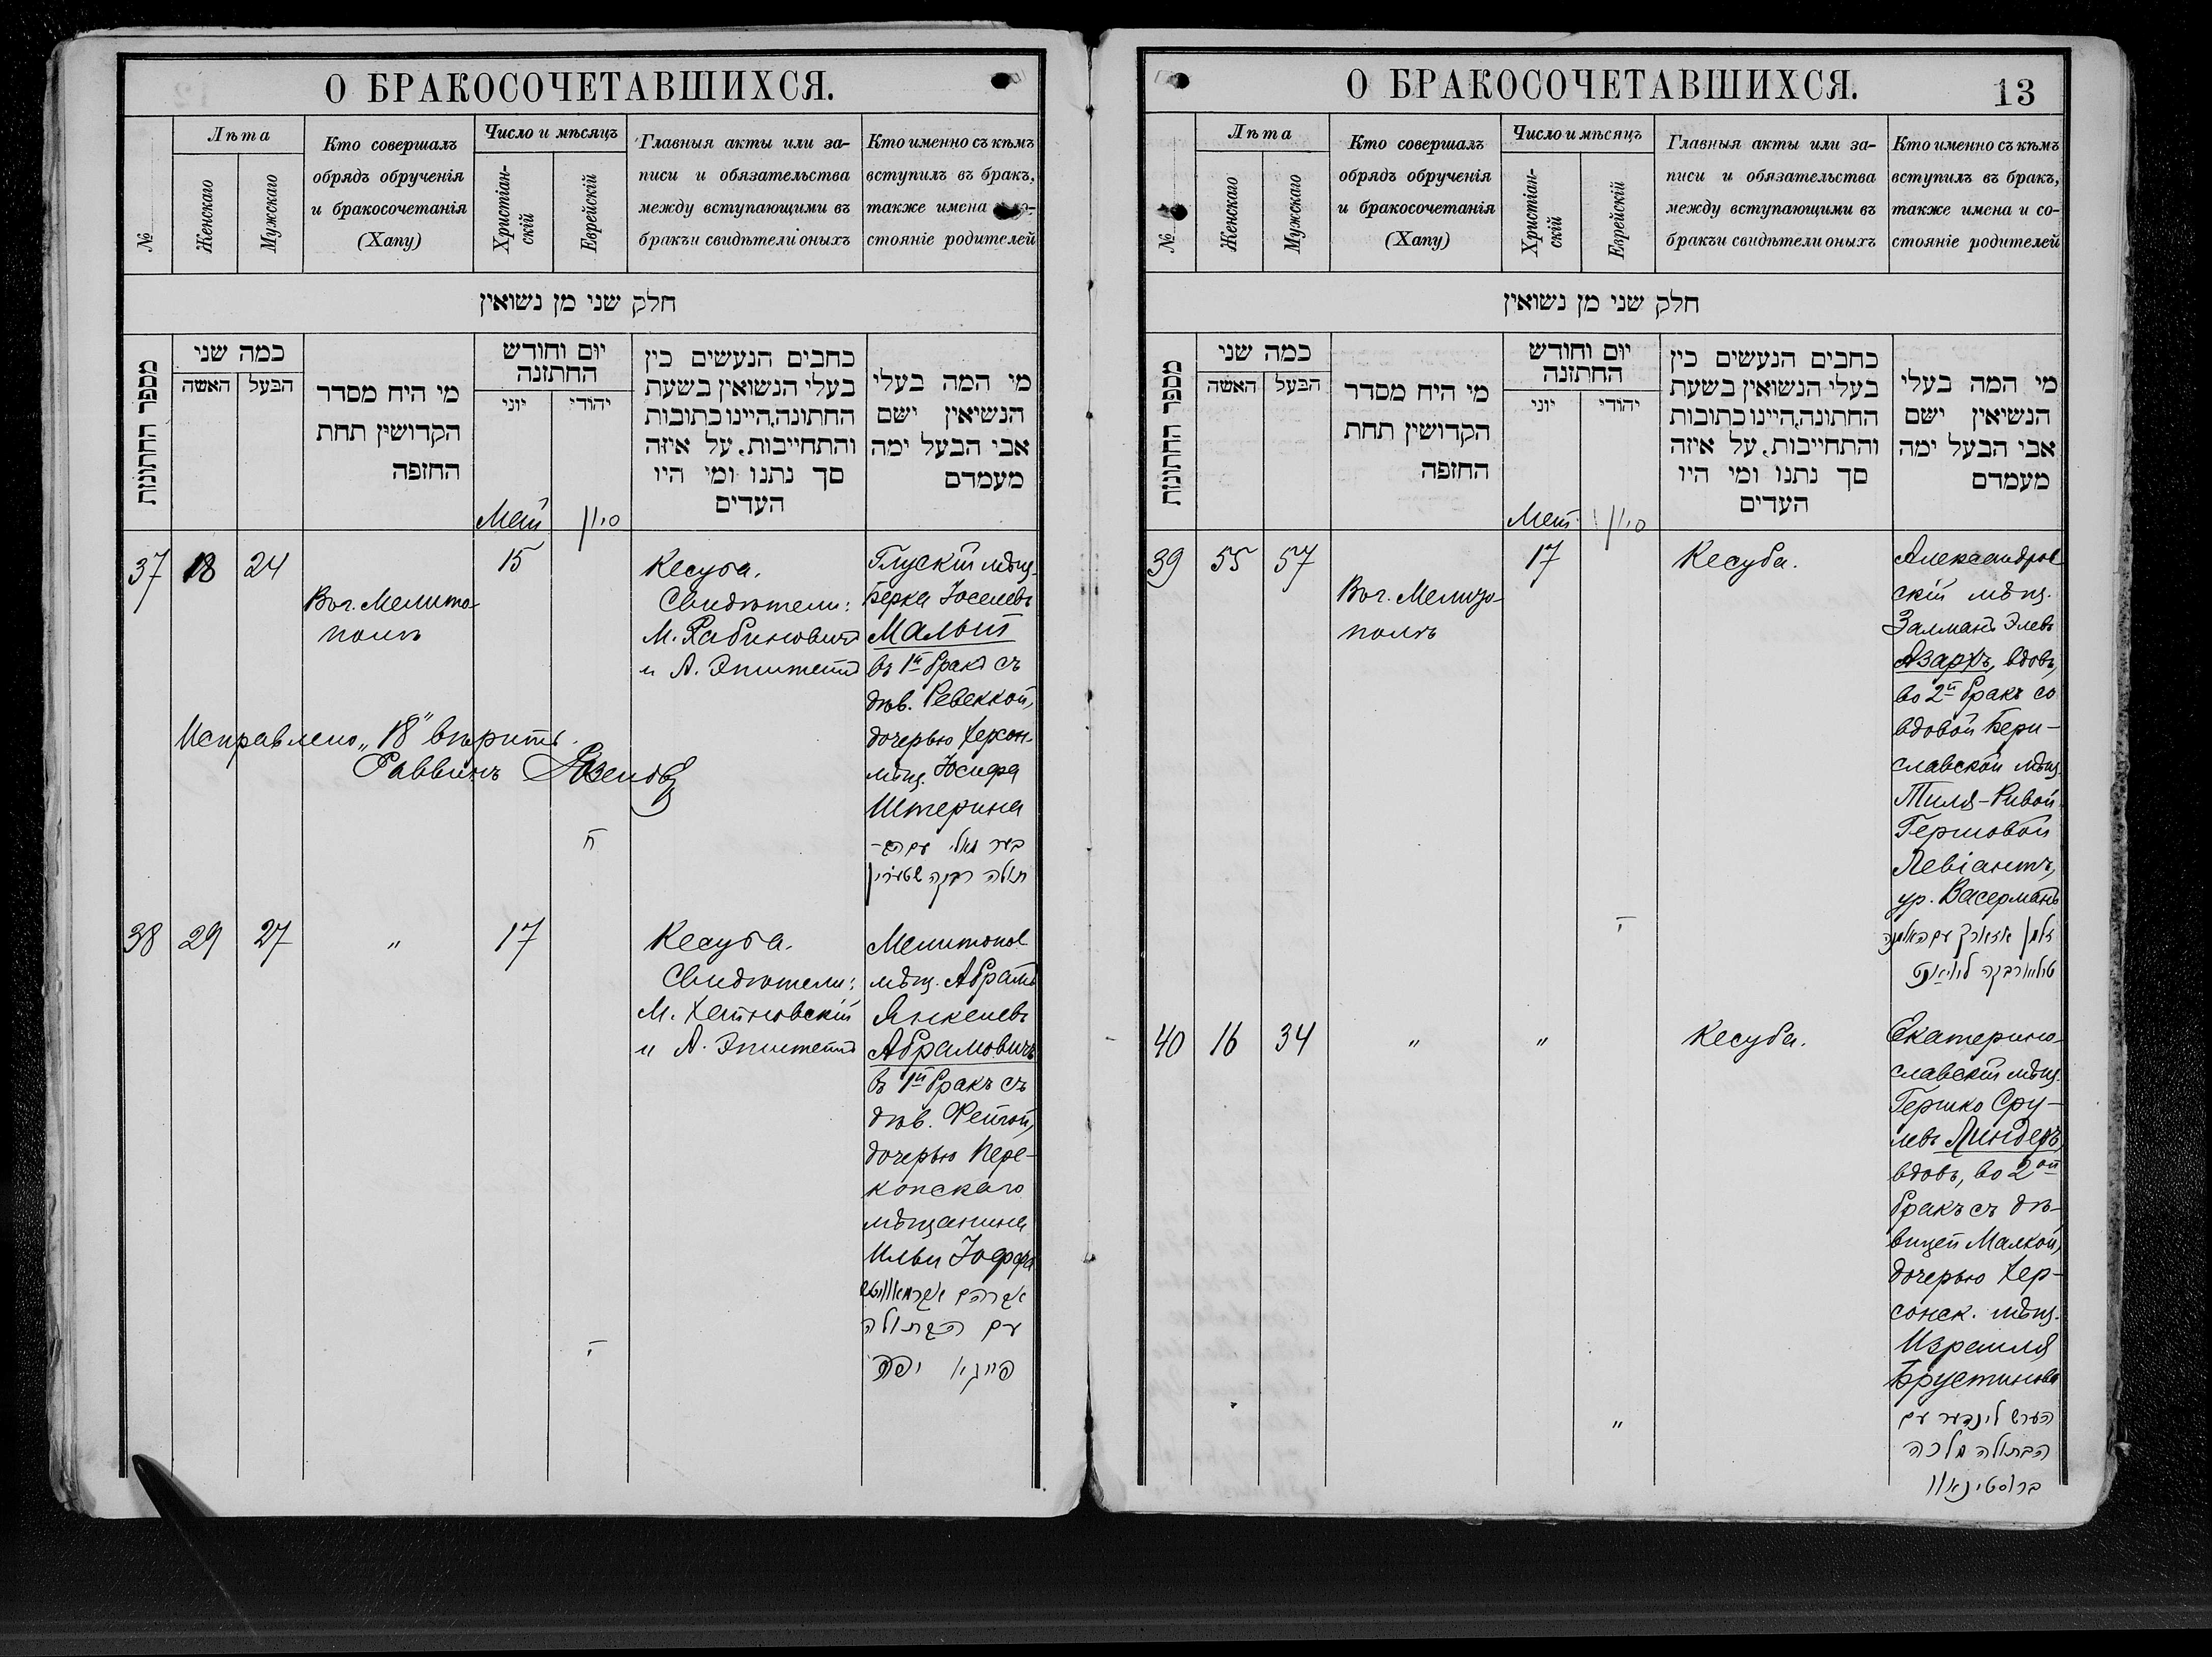 О БРАКОСОЧЕТАВШИХСЯ.
№
Лѣта
Женскаго
Мужскаго
Кто совершалъ
обрядъ обрученія
и бракосочетанія
(Хапу)
Число и мѣсяцъ
Христіан-
скій
Еврейскій
Главныя акты или за-
писи и обязательства
между вступающими въ
бракъ и свидѣтели оныхъ
Кто именно съ кѣмъ
вступилъ въ бракъ,
также имена
стояніе родителей
חלק שני מן נשואין
מספר החתונות
כמה שני
האשה
הבעל
מי היח מסדר
הקדושין תחת
החופה
יום וחודש
החתונה
יוני
יהודי
Май
סיון
כתבים הנעשים בין
בעלי הנשואין בשעת
החתונה, היינו כתובות
והתחייבות, על איזה
סך נתנו ומי היו
העדים
מי המה בעלי
הנשיאין ישם
אבי הבעל ימה
מעמדם
37 18 24
Въ г. Мелито-
полѣ
15
ח
Кесуба.
Свидѣтели:
М. Рабиновичъ
и А. Эпштейнъ
Глускій мѣщ.
Берка Іоселевъ
Малый
въ 1й бракъ съ
дѣв. Ревеккой,
дочерью Херсон.
мѣщ. Іосифа
Штерина
בער מאלי עם הב-
תולה רבקה שטערין
Исправлено „18" вѣрить.
Раввинъ
38 29 27 " 17
י
Кесуба.
Свидѣтели:
М. Хайновскій
и А. Эпштейнъ
Мелитопол
мѣщ. Абрамъ
Янкелевъ
Абрамовичъ
въ 1й бракъ съ
дѣв. Фейгой,
дочерью Пере-
копскаго
мѣщанина
Ильи Іоффа
אברהם אבראמאוויטש
עם הבתולה
פייגא יפה
О БРАКОСОЧЕТАВШИХСЯ. 13
№
Лѣта
Женскаго
Мужскаго
Кто совершалъ
обрядъ обрученія
и бракосочетанія
(Хапу)
Число и мѣсяцъ
Христіан-
скій
Еврейскій
Главныя акты или за-
писи и обязательства
между вступающими въ
бракъ и свидѣтели оныхъ
Кто именно съ кѣмъ
вступилъ въ бракъ,
также имена и со-
стояніе родителей
חלק שני מן נשואין
מספר החתונות
כמה שני
האשה
הבעל
מי היח מסדר
הקדושין תחת
החופה
יום וחודש
החתונה
יוני
יהודי
Май
סיון
כתבים הנעשים בין
בעלי הנשואין בשעת
החתונה, היינו כתובות
והתחייבות, על איזה
סך נתנו ומי היו
העדים
מי המה בעלי
הנשיאין ישם
אבי הבעל ימה
מעמדם
39 55 57
Въ г. Мелито-
полѣ
17
י
Кесуба.
Александров
скій мѣщ.
Залманъ Элевъ
Азархъ, вдовъ,
во 2й бракъ со
вдовой Бери-
славской мѣщ.
Тиля-Ривой
Гершовой
Левіантъ,
ур. Васерманъ
זלמן אזארך עם האלמנה
טיליא רבקה לוויאנט
40 16 34 " "
"
Кесуба.
Екатерино-
славскій мѣщ.
Гершко Сру-
левъ Линдеръ,
вдовъ, во 2ой
бракъ съ дѣ-
вицей Малкой,
дочерью Хер-
сонск. мѣщ.
Израиля
Брустинова
הערש לינדער עם
הבתולה מלכה
ברוסטינאוו